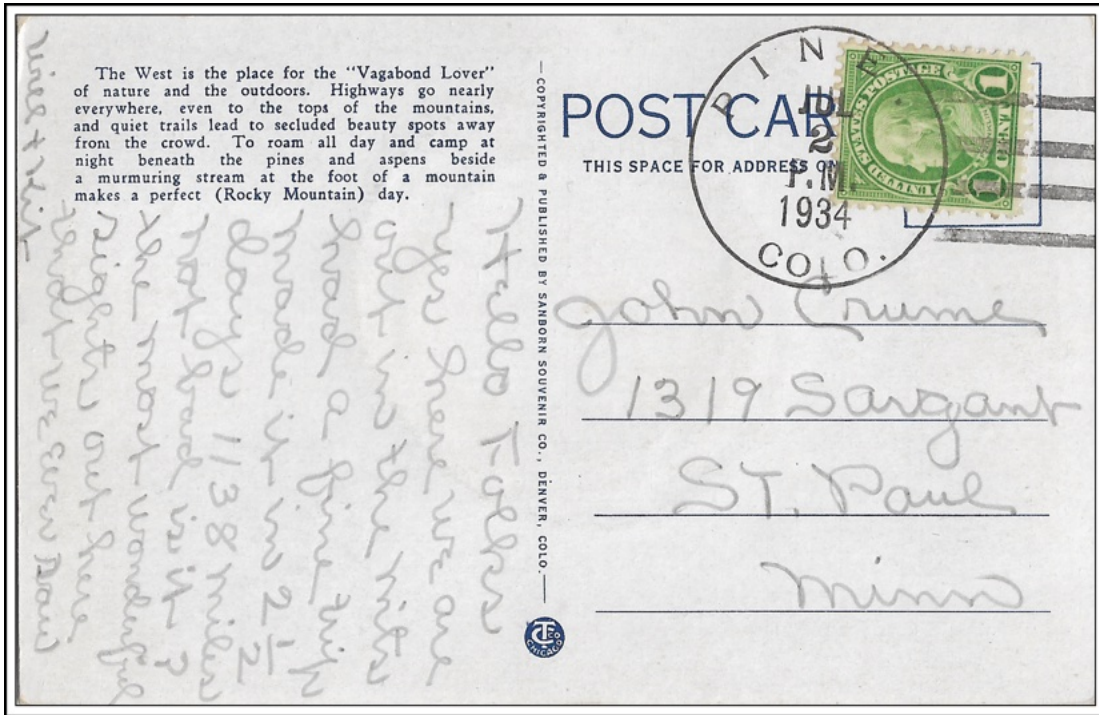 The West is the place for the "Vagabond Lover"
of nature and the outdoors. Highways go nearly
everywhere, even to the tops of the mountains,
and quiet trails lead to secluded beauty spots away
from the crowd. To roam all day and camp at
night beneath the pines and aspens beside
a murmuring stream at the foot of a mountain
makes a perfect (Rocky Mountain) day.
Hello Folks
Yes here we are
out in the mts
had a fine trip
made it in 2 1/2
days 1138 miles
not bad is it?
the most wonderful
sights out here
that we Ever Saw
—COPYRIGHTED & PUBLISHED BY SANBORN SOUVENIR CO., DENVER, COLO.—
CHICAGO
POST CAR
THIS SPACE FOR ADDRESS ON
PINE
JUL
2
P.M.
1934
COLO.
U.S. POSTAGE
1
1
John Crume
1319 Sargant
ST. Paul
Minn